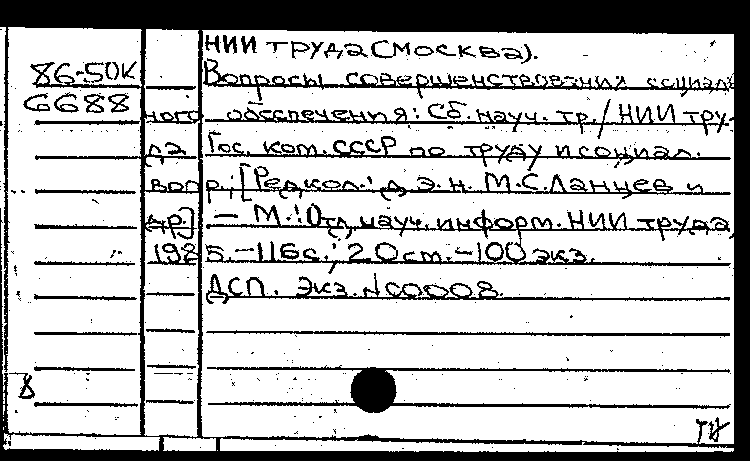 НИИ труда (Москва).
86-50К Вопросы совершенствования социаль
6688 ного обеспечения: Сб. науч. тр./НИИ тру-
да Гос. ком. СССР по труду и социал.
вопр.; [Редкол.: д. э. н. М.С.Ланцев и
др.] – М.: Отд. науч. информ. НИИ труда,
1985.–116с.; 20 см.–100экз.
ДСП. Экз.N00008.
8